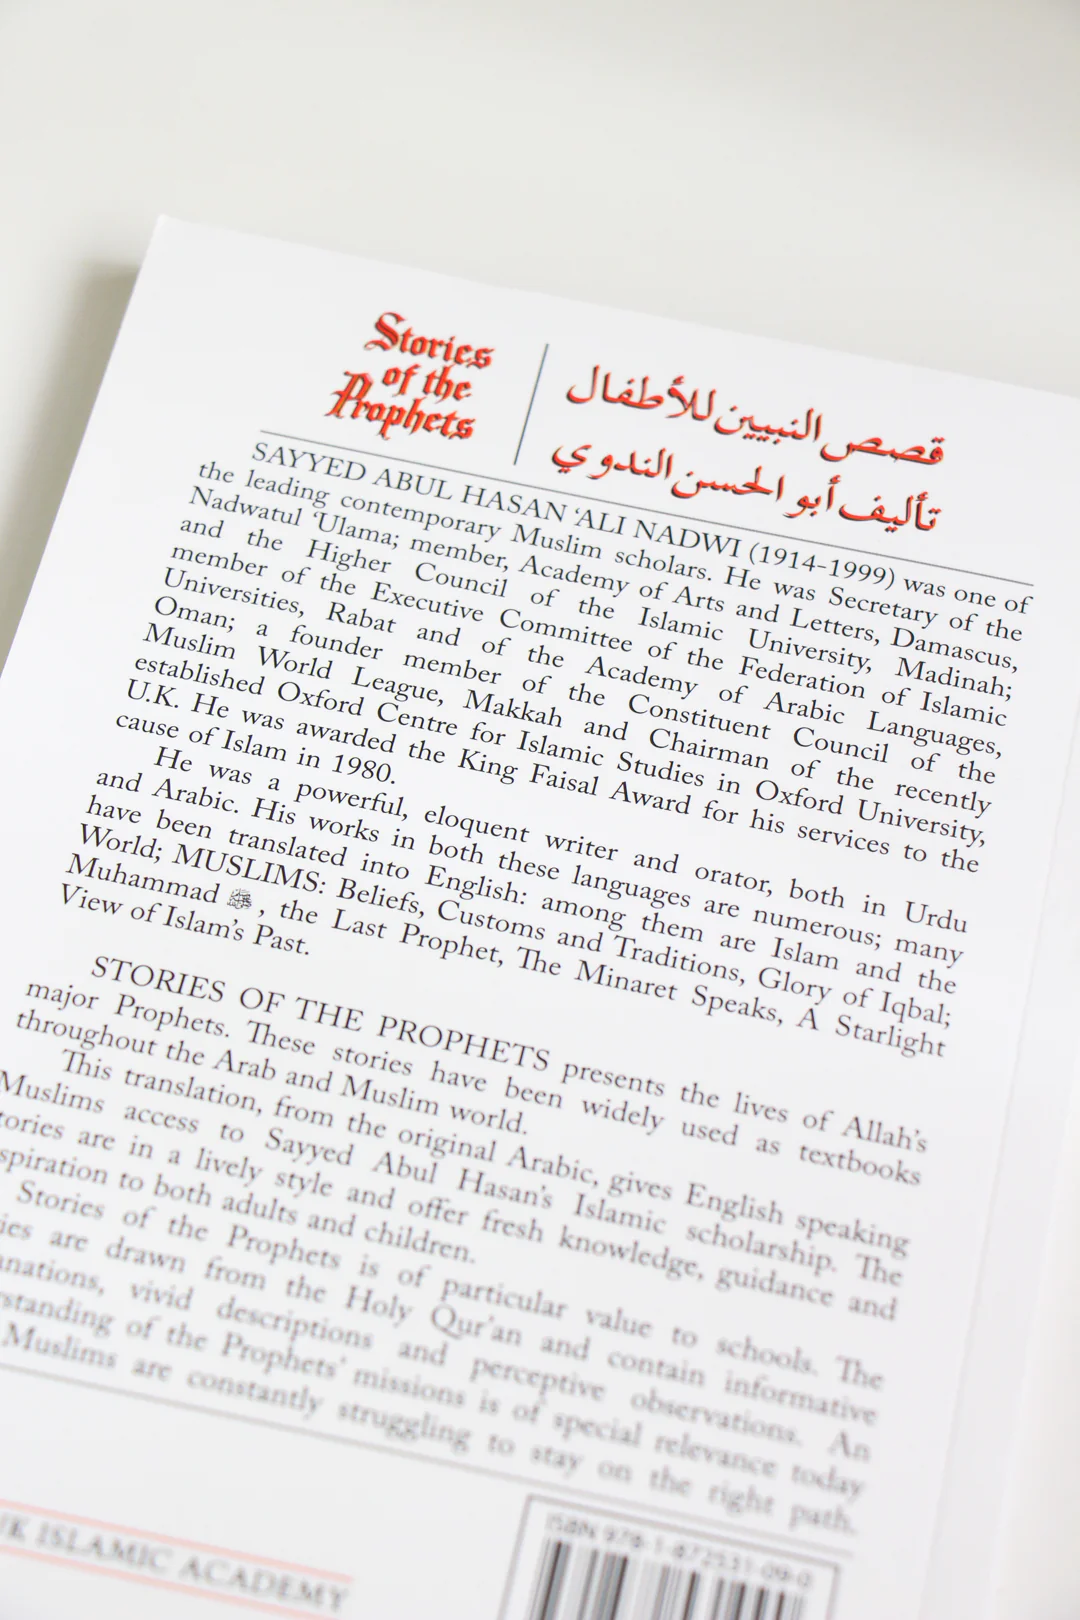 Stories
of the
Prophets
قصص النبيين للأطفال
تأليف أبو الحسن الندوي
SAYYED ABUL HASAN ‘ALI NADWI (1914-1999) was one of
the leading contemporary Muslim scholars. He was Secretary of the
Nadwatul ‘Ulama; member, Academy of Arts and Letters, Damascus,
and the Higher Council of the Islamic University, Madinah;
member of the Executive Committee of the Federation of Islamic
Universities, Rabat and of the Academy of Arabic Languages,
Oman; a founder member of the Constituent Council of the
Muslim World League, Makkah and Chairman of the recently
established Oxford Centre for Islamic Studies in Oxford University,
U.K. He was awarded the King Faisal Award for his services to the
cause of Islam in 1980.
He was a powerful, eloquent writer and orator, both in Urdu
and Arabic. His works in both these languages are numerous; many
have been translated into English: among them are Islam and the
World; MUSLIMS: Beliefs, Customs and Traditions, Glory of Iqbal;
Muhammad ﷺ, the Last Prophet, The Minaret Speaks, A Starlight
View of Islam’s Past.
STORIES OF THE PROPHETS presents the lives of Allah’s
major Prophets. These stories have been widely used as textbooks
throughout the Arab and Muslim world.
This translation, from the original Arabic, gives English speaking
Muslims access to Sayyed Abul Hasan’s Islamic scholarship. The
tories are in a lively style and offer fresh knowledge, guidance and
spiration to both adults and children.
Stories of the Prophets is of particular value to schools. The
ies are drawn from the Holy Qur’an and contain informative
anations, vivid descriptions and perceptive observations. An
rstanding of the Prophets’ missions is of special relevance today
Muslims are constantly struggling to stay on the right path.
UK ISLAMIC ACADEMY
ISBN 978-1-872531-09-0